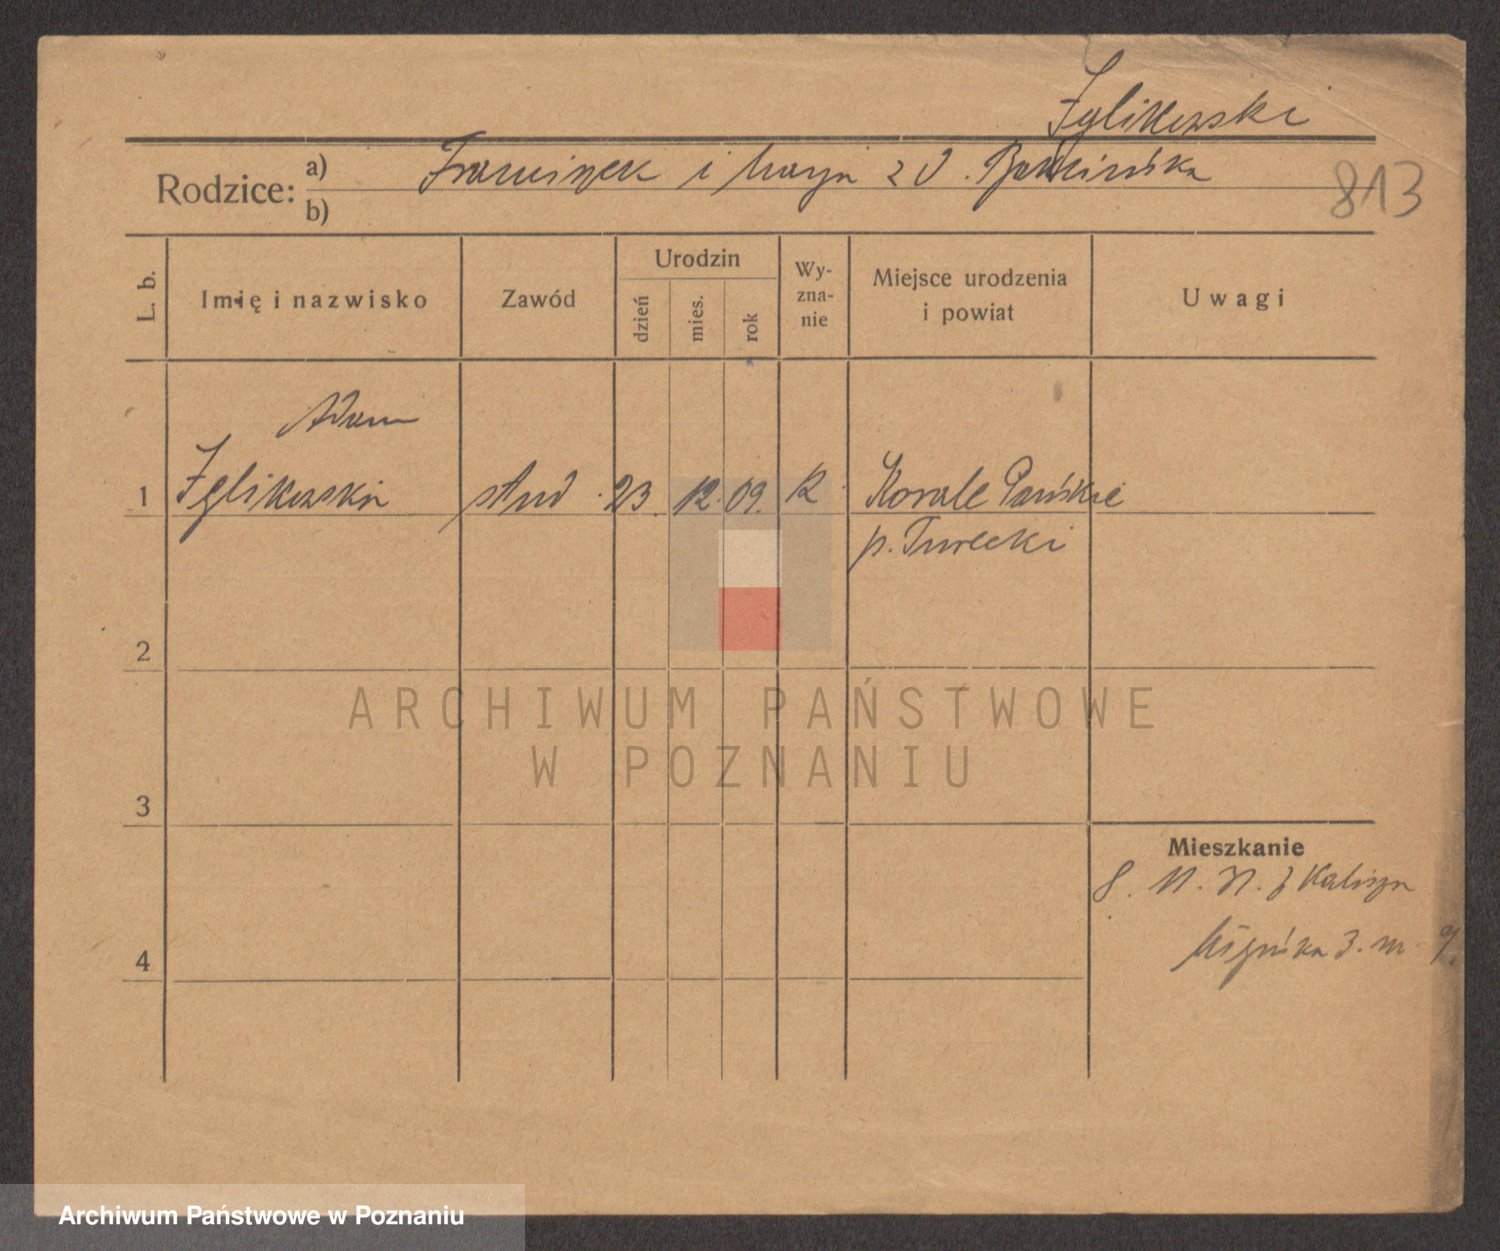 Zglikowski
Rodzice: a) Franciszek i Marja z d.
b)
813
L. b.
Imię i nazwisko
Zawód
Urodzin
dzień
mies.
rok
Wy-
zna-
nie
Miejsce urodzenia
i powiat
Uwagi
Adam
1 Zglikowski stud 23. 12. 09. R Kowale Pańskie
p. Turecki
2
ARCHIWUM PAŃSTWOWE
W POZNANIU
3
Mieszkanie
Kalisza
3. m. 9
4
Archiwum Państwowe w Poznaniu